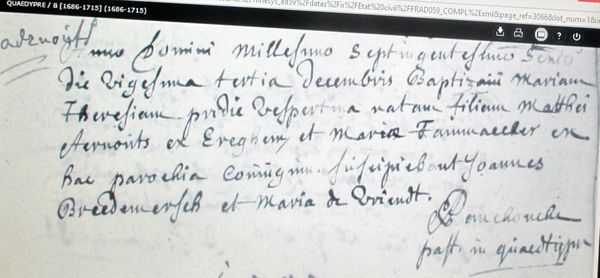 QUAEDYPRE / B [1686-1715] (1686-1715)
nnesys_ad59%2Fdatas%2Fir%2FEtat civil%2FFRAD059_COMPL%2Exml&page_ref=3066&lot_num=1&i
adznouts
Anno Domini Millesimo Septingentesimo Sexto
die vigesima tertia decembris Baptizavi Mariam
Theresiam pridie vespertina natam filiam Matthei
Aernouts ex Ereghem et Mariæ Tammaeller ex
hac parochia coniugum. suscipiebant Joannes
Breedemersch et Maria de Vriendt.
past. in quaedyppr